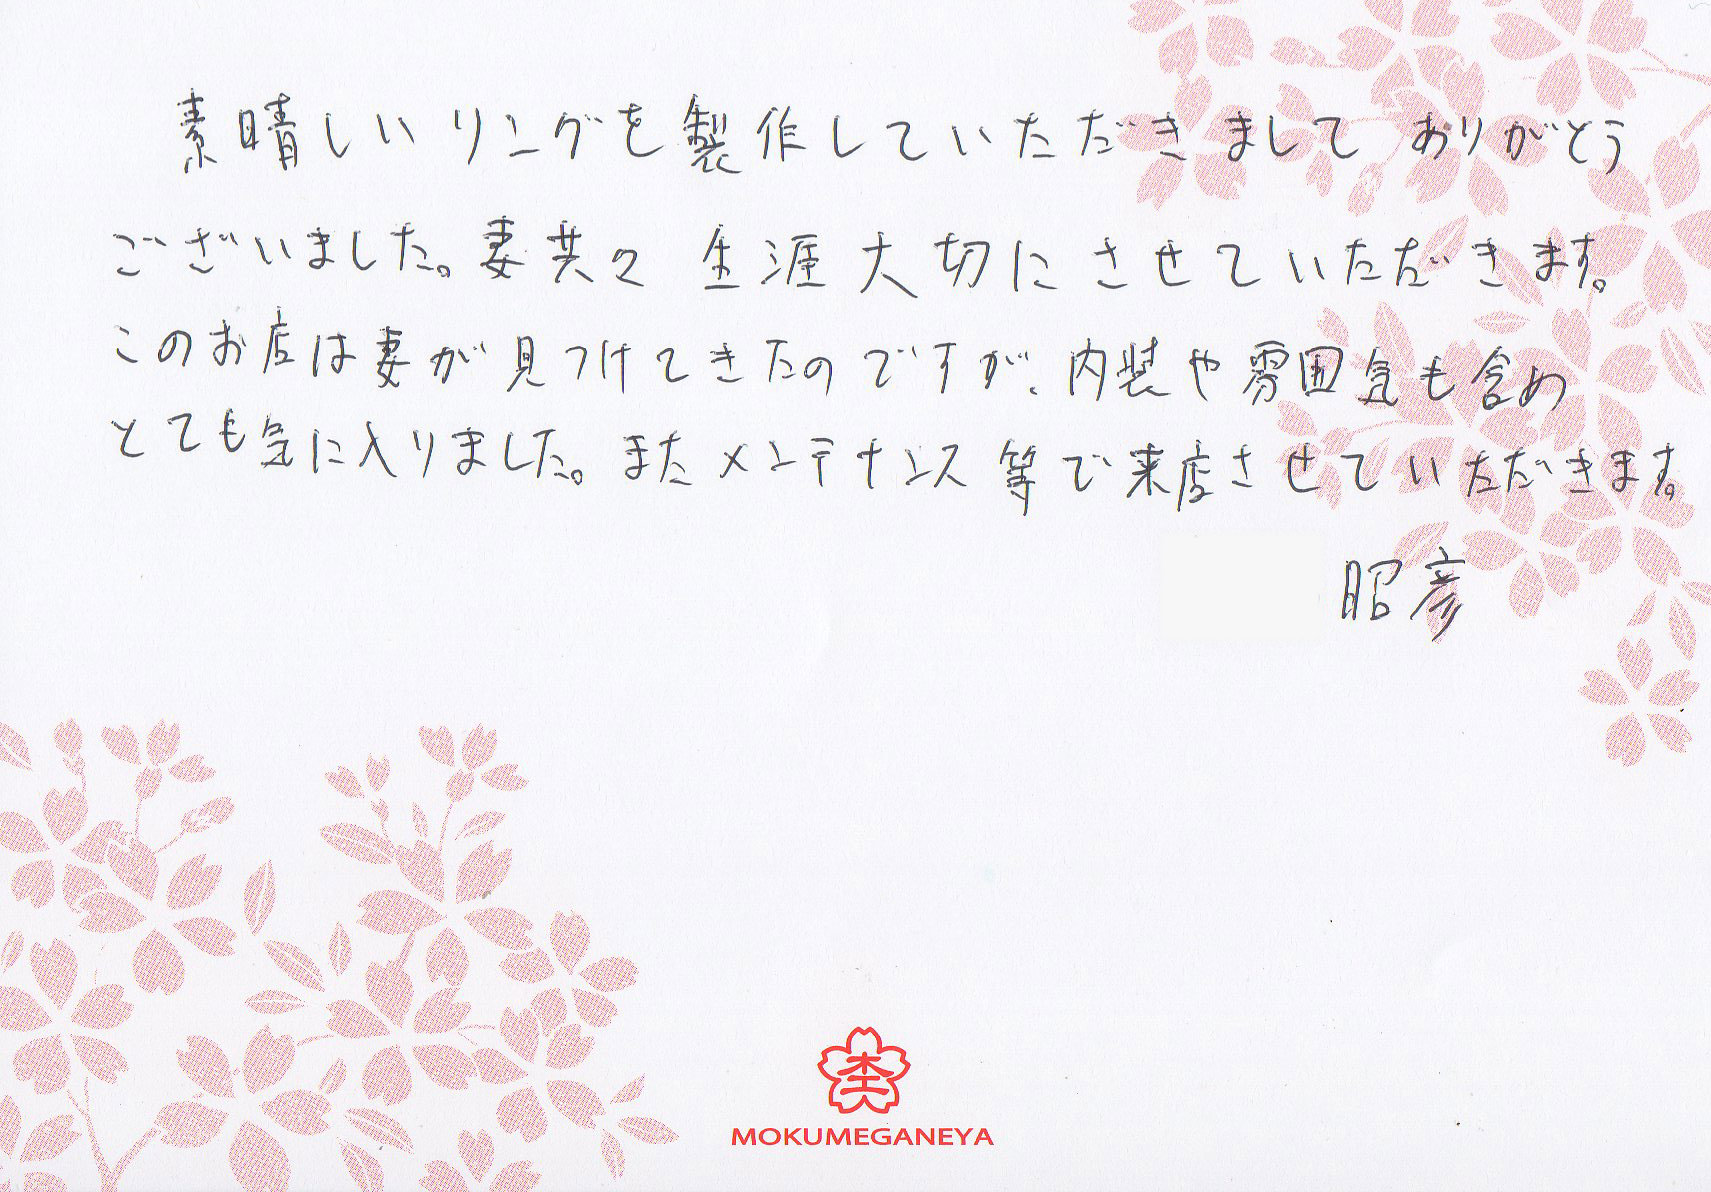 素晴しいリングを製作していただきまして ありがとう
ございました。妻共々 生涯大切にさせていただきます。
このお店は妻が見つけてきたのですが、内装や雰囲気も含め
とても気に入りました。またメンテナンス等で来店させていただきます。
昭彦
MOKUMEGANEYA